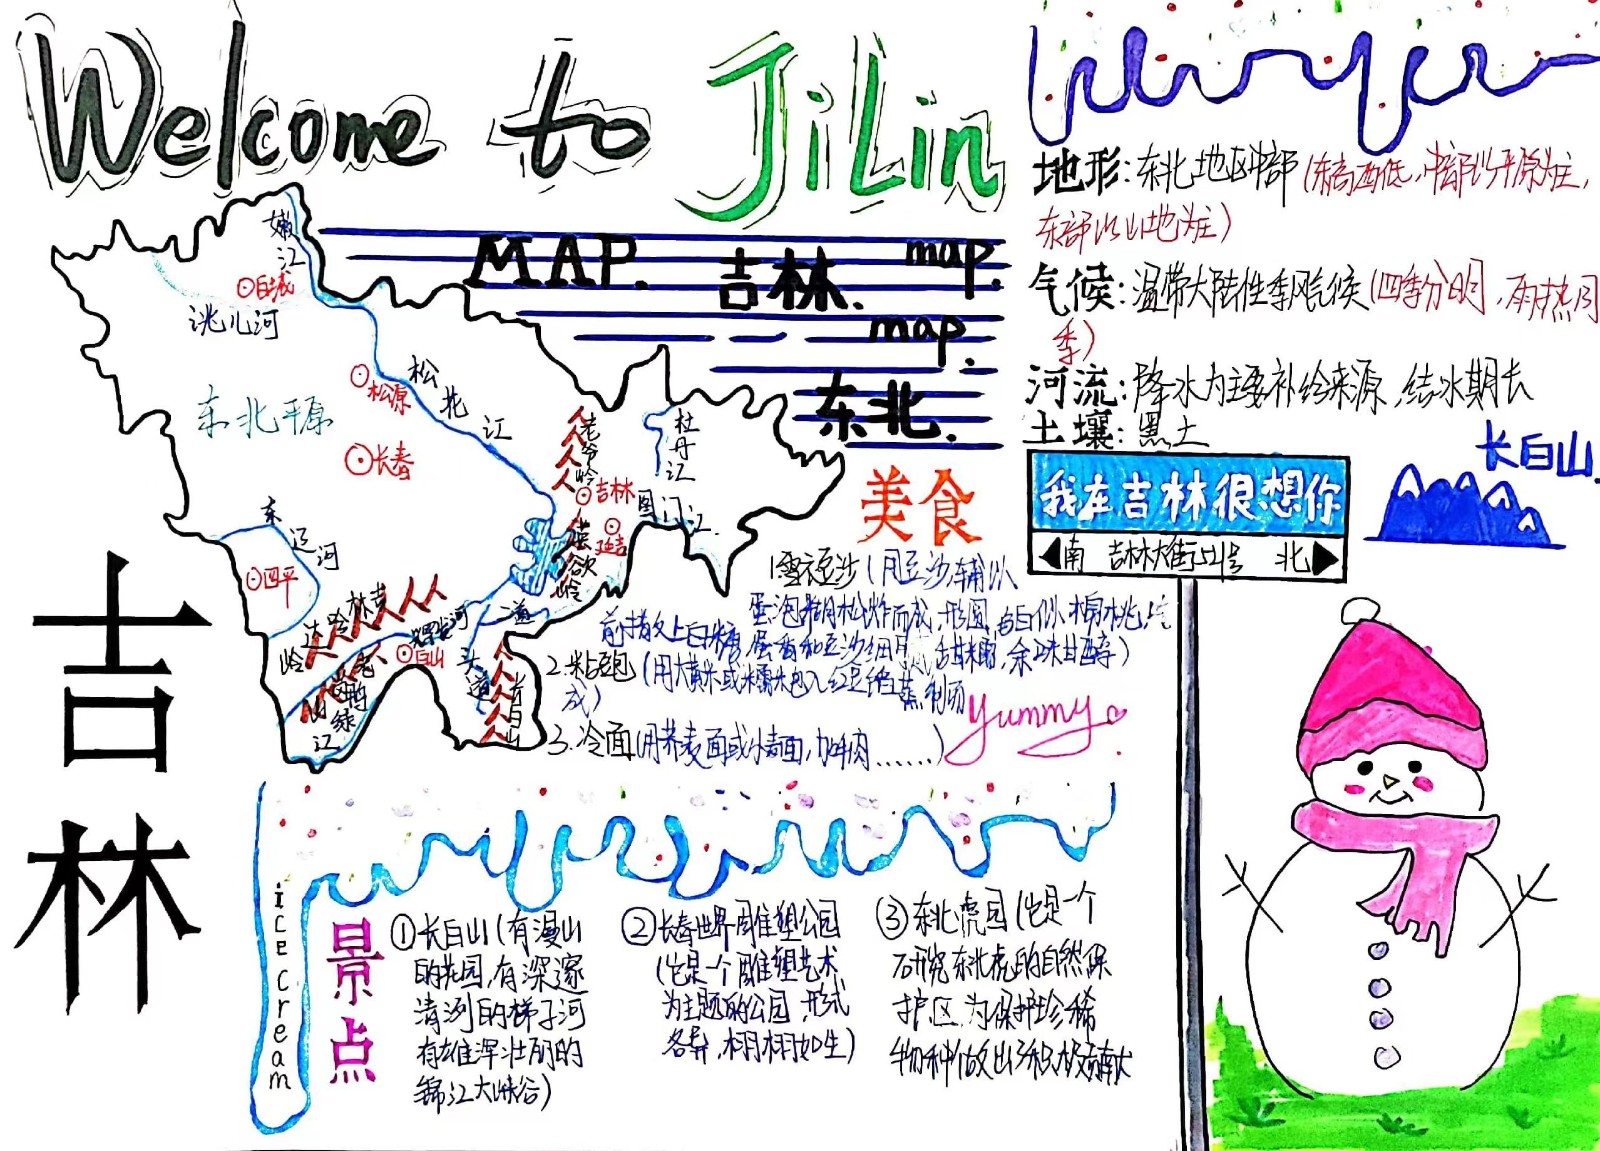 Welcome to JiLin
MAP.
吉林.
map.
map.
东北.
吉林
嫩江
白城
洮儿河
松原
松花江
东北平原
长春
老爷岭
牡丹江
吉林
图们江
延吉
东辽河
四平
吉林
哈达岭
辉发河
白山
老
鸭绿江
头道
长白山
地形:东北地区中部(东高西低,中部以平原为主,
东部以山地为主)
气候:温带大陆性季风气候(四季分明,雨热同
季)
河流:降水为主要补给来源,结冰期长
土壤:黑土
长白山.
我在吉林很想你
南 吉林大街51号 北
美食
1雪衣豆沙(用豆沙辅以
蛋泡糊松炸而成,形圆,色白似棉桃,吃
前撒上白糖,蛋香和豆沙细
2.粘豆包(用大黄米或糯米包入红豆馅蒸制
成)
3.冷面(用荞麦面或小麦面,加牛肉……)
Yummy.
ice cream
景点
①长白山(有漫山
的花园,有深邃
清冽的梯子河
有雄浑壮丽的
锦江大峡谷)
②长春世界雕塑公园
(它是一个雕塑艺术
为主题的公园,形式
各异,栩栩如生)
③东北虎园(它是一个
研究东北虎的自然保
护区,为保护珍稀
物种做出积极贡献